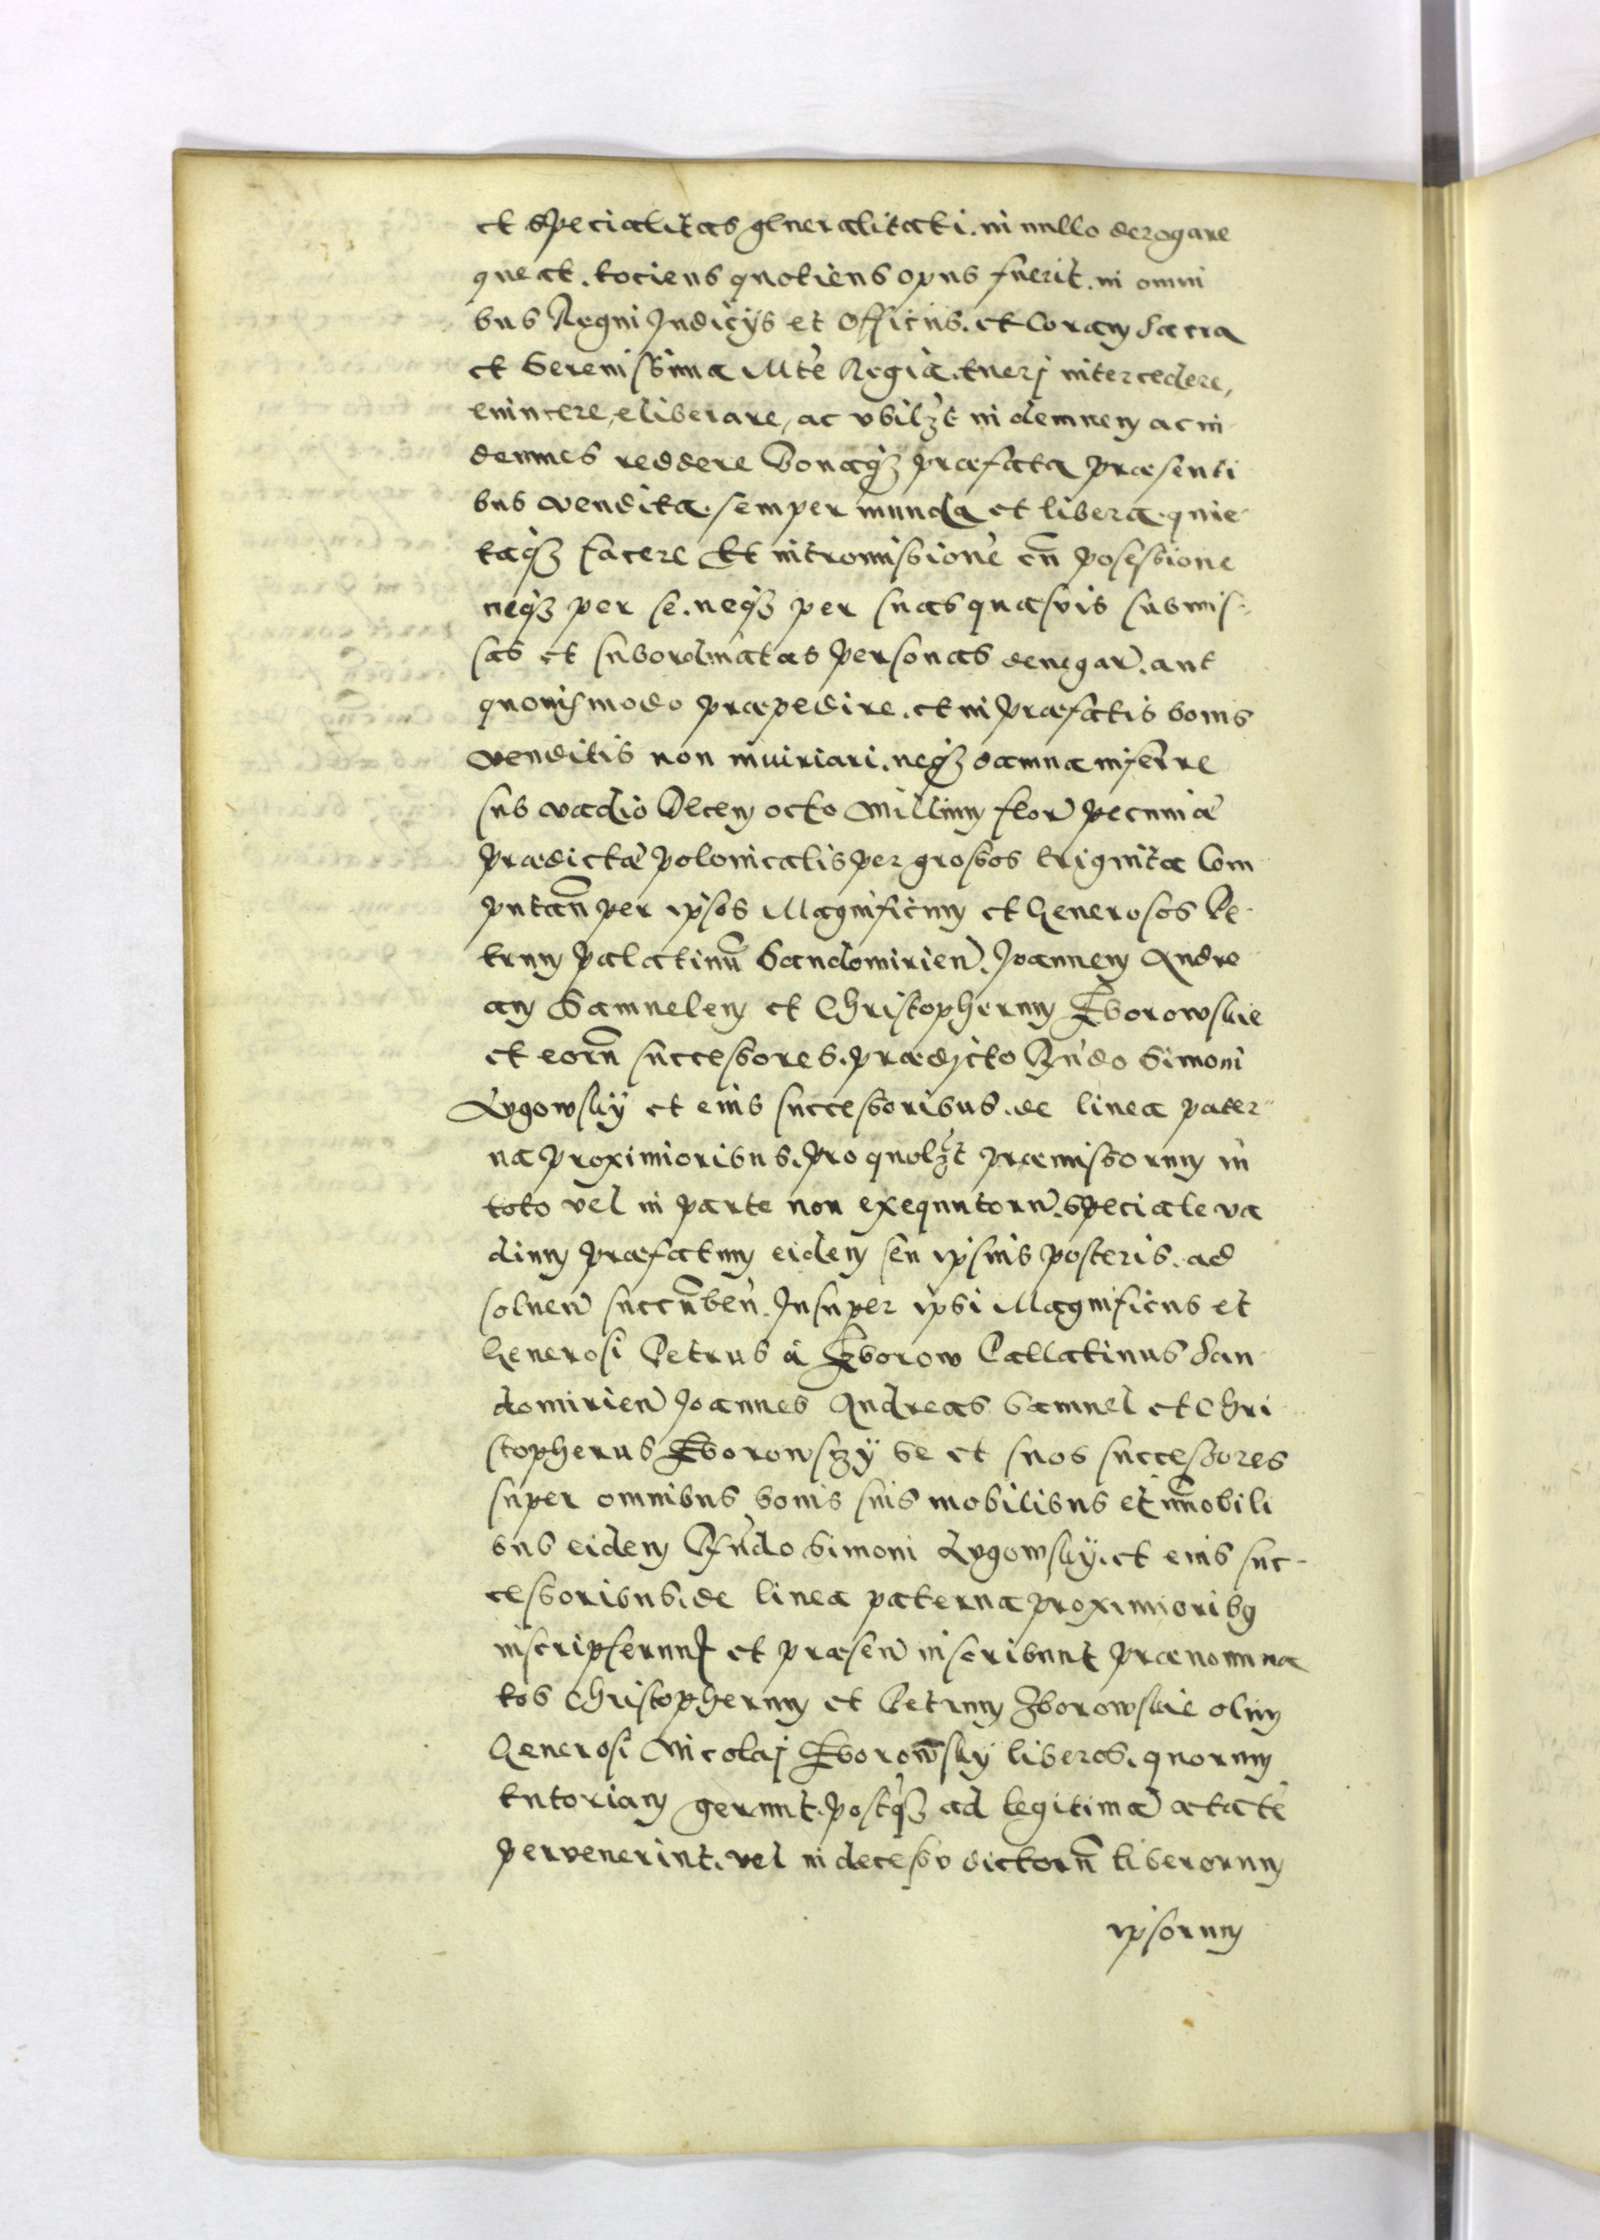 et specialitas generalitati. in nullo derogare
queat. tociens quotiens opus fuerit. in omni
bus Regni Judicÿs et Officiis. et Coram Sacra
et Serenissima Mte Regia. tuerj intercedere,
euincere, eliberare, ac vbilzt in demnem ac in
demnes reddere Bonaqz præfata præsenti
bus vendita. semper munda et libera. quie
taqz facere Et intromissione cu posessione
neqz per se. neqz per suas quasvis submis-
sas et subordinatas personas denegar. aut
quouismodo præpedire. et in præfatis bonis
venditis non iniuriari. neqz damna inferre
sub vadio Decem octo Millium flor pecuniæ
prædictæ polonicalis per grossos triginta Com
putan per ipsos Magnificum et Generosos Pe-
trum Palatinu Sandomirien. Joannem Andre
am Samuelem et Christopherum Zborowskie
et eoru successores. prædicto Vrndo Simoni
Lugowskÿ et eius successoribus. de linea pater-
na proximioribus. pro quolzt præmissorum in
toto vel in parte non exequutoru. speciale va
dium præfatum eidem seu ipsius posteris. ad
soluen succuben. Insuper ipsi Magnificus et
Generosi Petrus à Zborow Pallatinus San
domirien Joannes Andreas Samuel et Chri
stopherus Zborowsczÿ se et suos successores
super omnibus bonis suis mobilibus et imobili
bus eidem Vrndo Simoni Lugowskÿ. et eius suc-
cessoribus. de linea paterna proximioribq
inscripserunt et præsen inscribunt prænomina
tos Christopherum et Petrum Zborowskie olim
Generosi Nicolaj Zborowskÿ liberos. quorum
tutoriam gerunt. postqz ad legitima ætate
pervenerint. vel in decessv dictoru liberorum
ipsorum